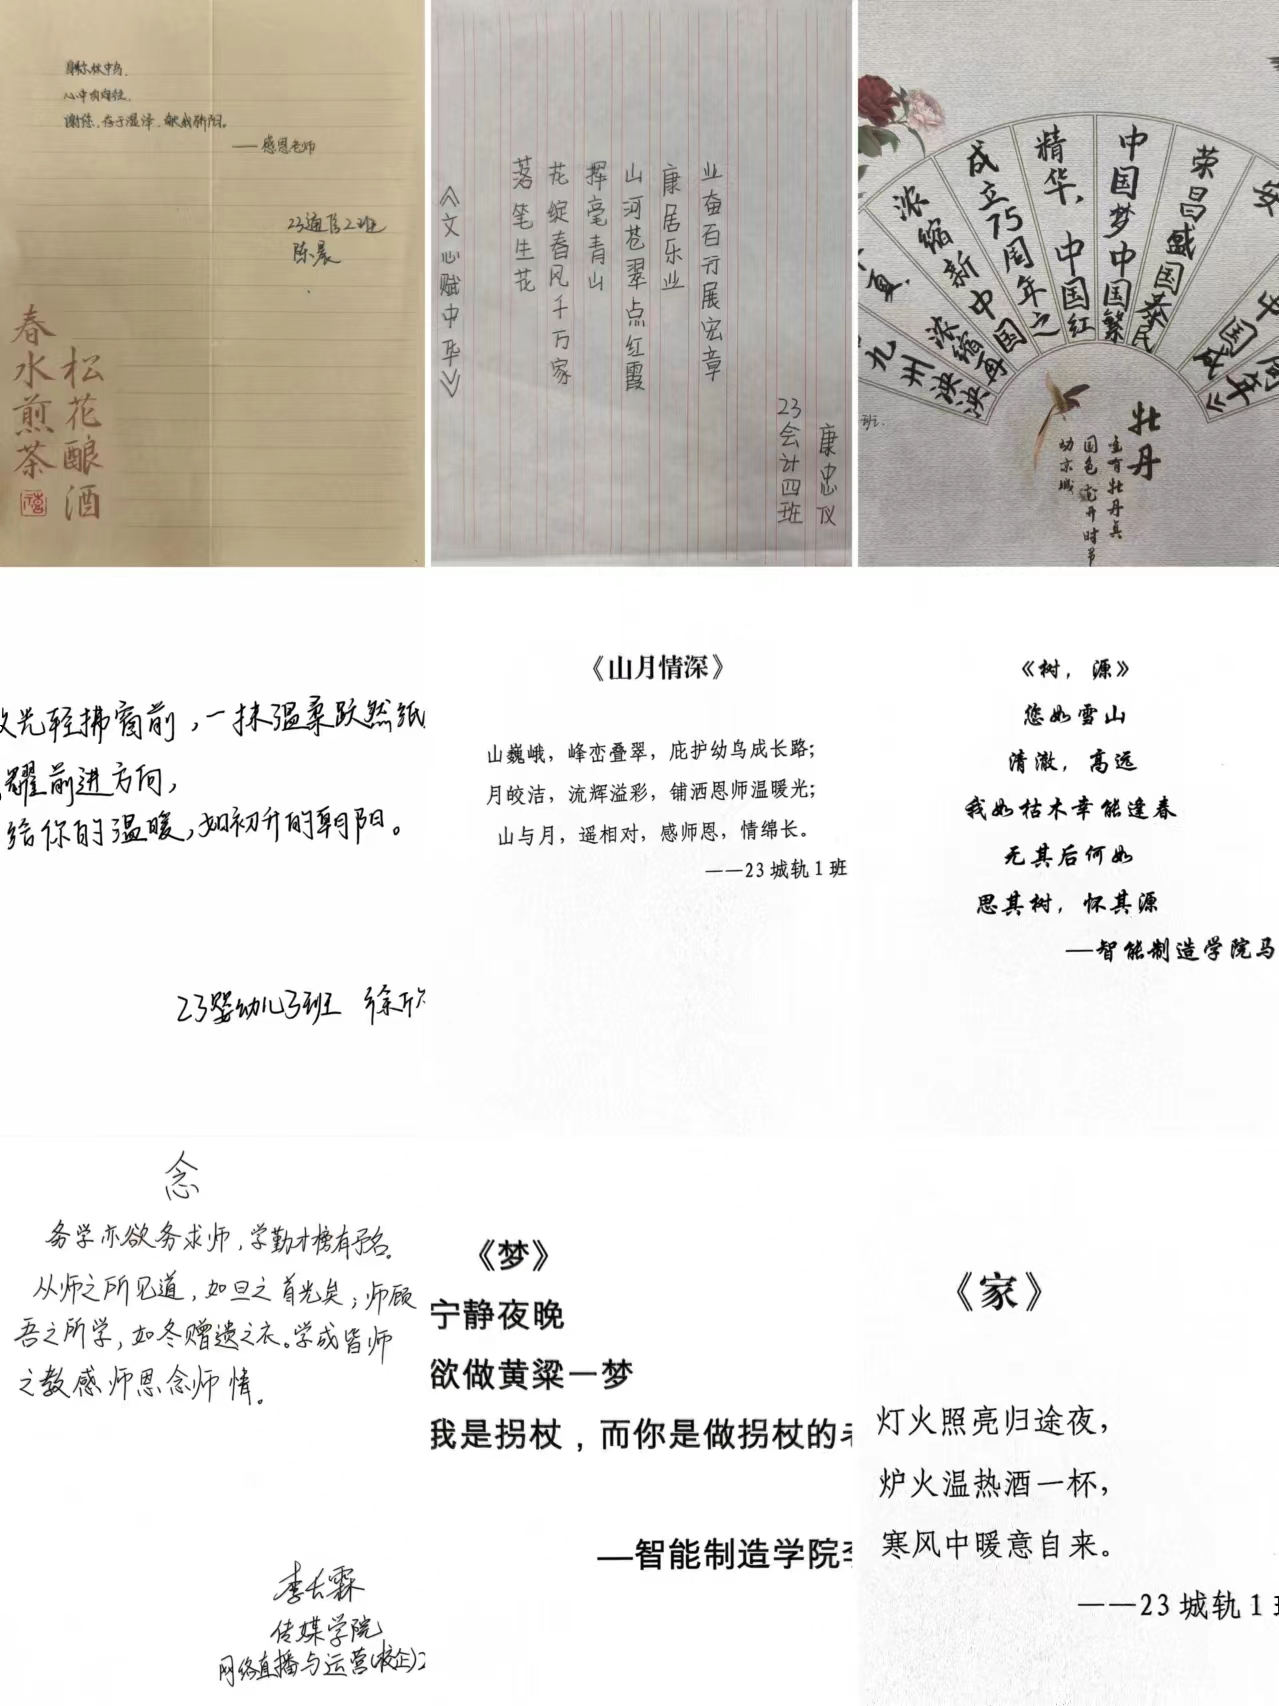 心中有
谢您,存于湿泽,献我骄阳。
——感恩老师
23通信2班
陈晨
松花酿酒
春水煎茶
康忠仪
23会计四班
业奋百行展宏章
康居乐业
山河苍翠点红霞
挥毫青山
花绽春风千万家
落笔生花
《文心赋中华》
安
荣昌盛国泰民
中国梦中国繁
精华,中国红
成立75周年之
浓缩新中国
浓缩再
九州泱泱
班.
牡丹
唯有牡丹真
国色花开时节
动京城
光轻拂窗前,一抹温柔跃然纸
耀前进方向,
给你的温暖,如初升的朝阳。
23婴幼儿3班 徐欣
《山月情深》
山巍峨,峰峦叠翠,庇护幼鸟成长路;
月皎洁,流辉溢彩,铺洒恩师温暖光;
山与月,遥相对,感师恩,情绵长。
——23城轨1班
《树,源》
您如雪山
清澈,高远
我如枯木幸能逢春
无其后何如
思其树,怀其源
—智能制造学院马
念
务学亦欲务求师,学勤才榜有予名。
从师之所见道,如旦之首光矣;师顾
吾之所学,如冬赠遗之衣。学成皆师
之教感师恩念师情。
李长霖
传媒学院
网络直播与运营(校企)2
《梦》
宁静夜晚
欲做黄粱一梦
我是拐杖,而你是做拐杖的
—智能制造学院李
《家》
灯火照亮归途夜,
炉火温热酒一杯,
寒风中暖意自来。
——23城轨1班